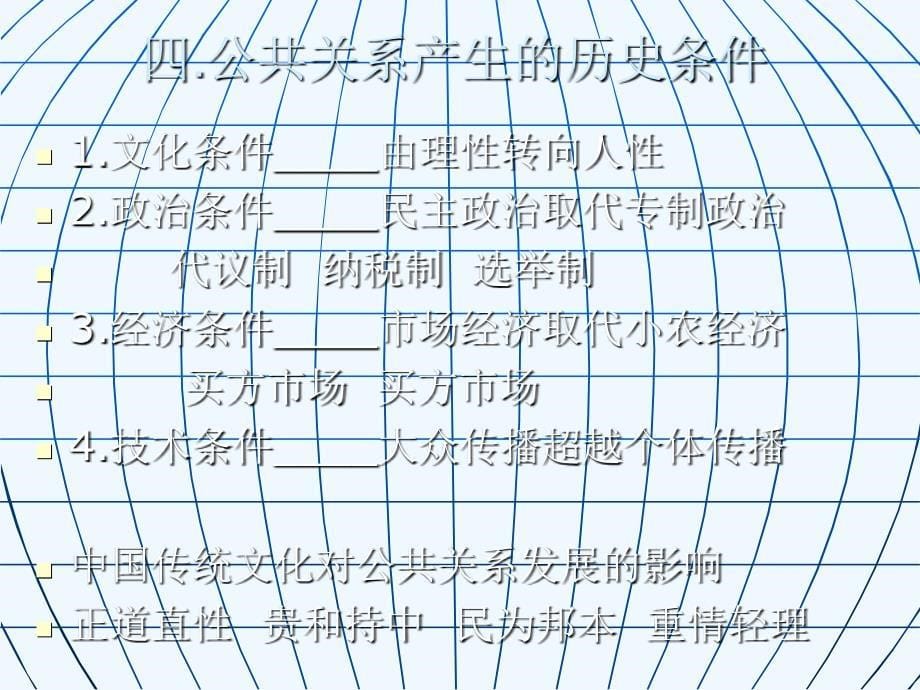 四.公共关系产生的历史条件
1.文化条件_____由理性转向人性
2.政治条件_____民主政治取代专制政治
代议制 纳税制 选举制
3.经济条件_____市场经济取代小农经济
买方市场 买方市场
4.技术条件_____大众传播超越个体传播
中国传统文化对公共关系发展的影响
正道直性 贵和持中 民为邦本 重情轻理